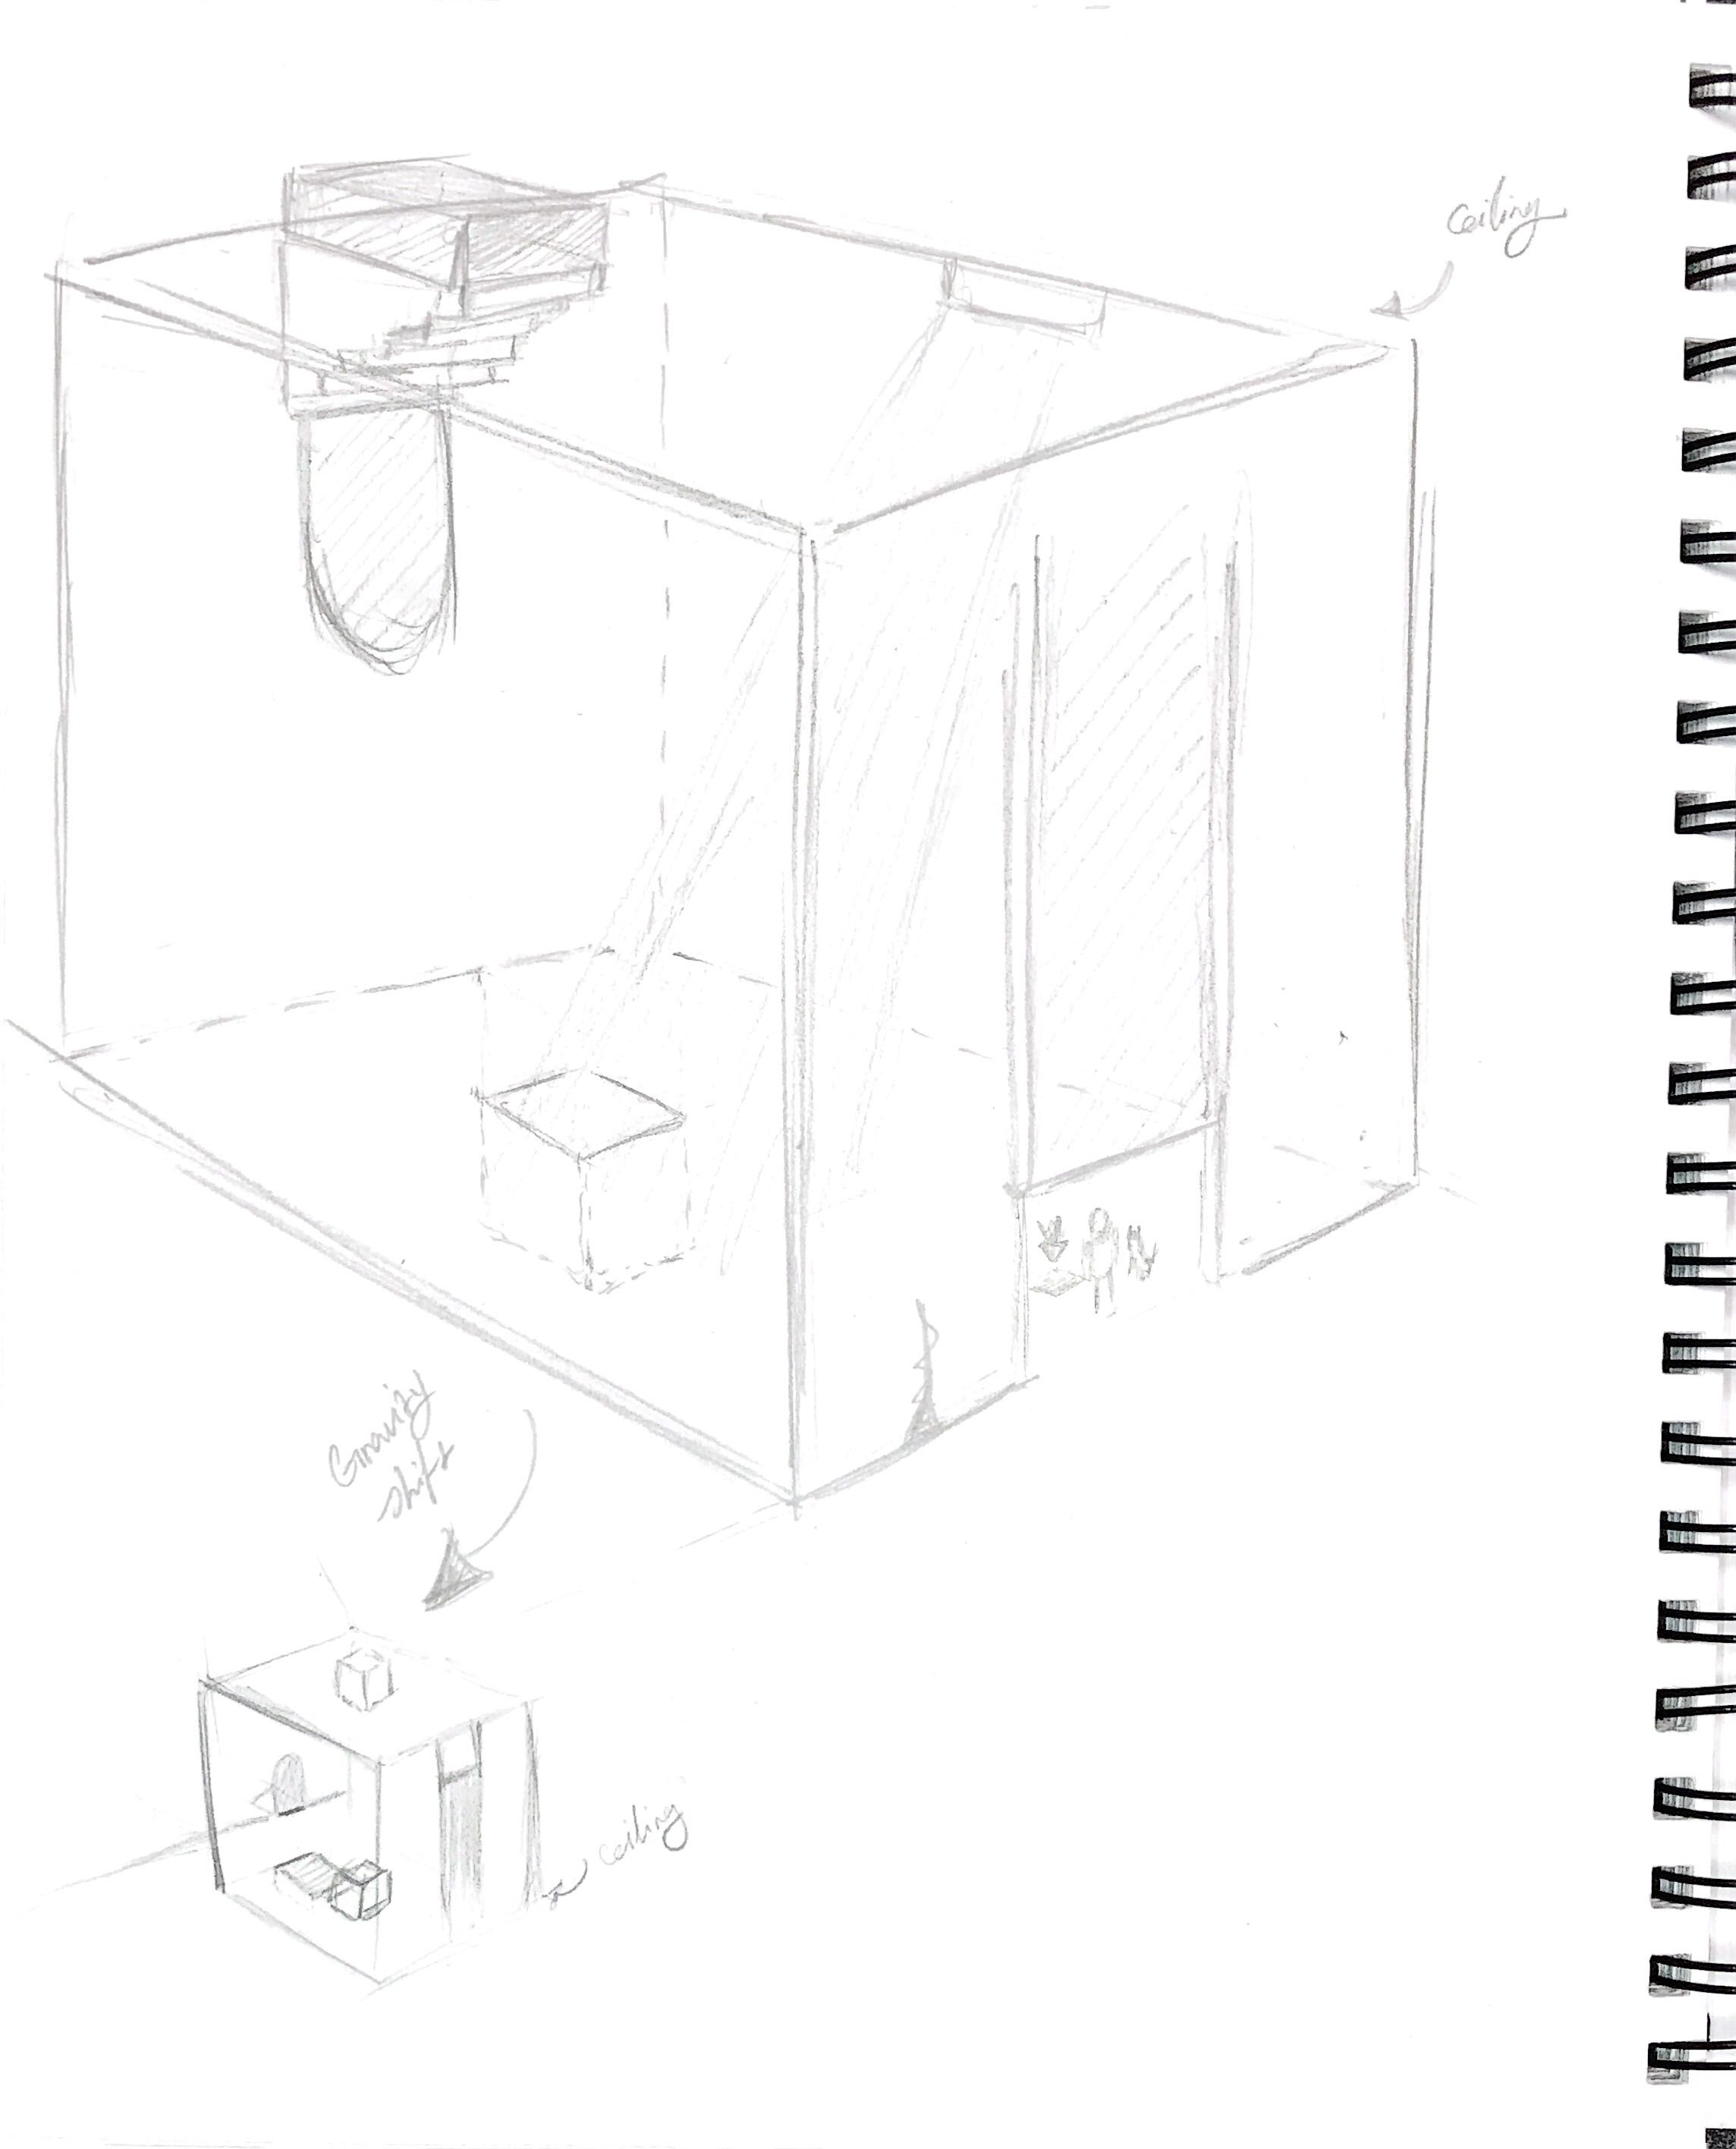 ceiling
Gravity
shift
ceiling